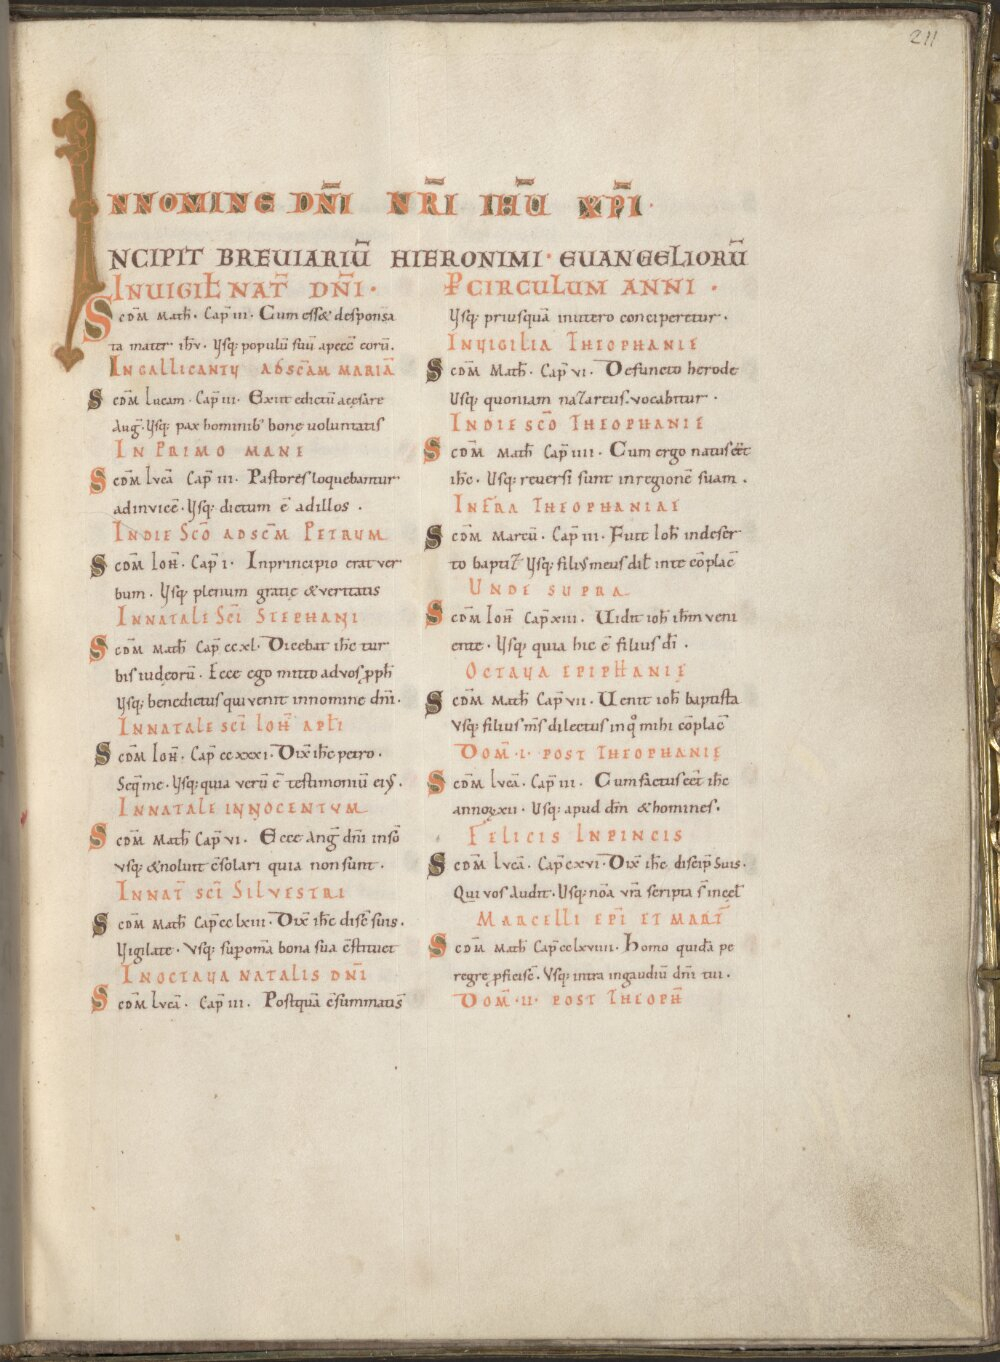 211
INNOMINE DN̄I NR̄I IH̄U XP̄I·
INCIPIT BREUIARIŪ HIERONIMI· EUANGELIORŪ
IN UIGIL̄ NAT̄ DN̄I·
Scd̄m Math̄· Cap̄ iii· Cum eſſ& deſponſa
ta mater ih̄u· Uſq; populū suū apecc̄ eorū.
IN GALLICANTU AD SC̄AM MARIĀ
Scd̄m Lucam· Cap̄ iii· Exiit edictū aceſare
Auḡ· Uſq; pax hominib' bonę uoluntatis
IN PRIMO MANE
Scd̄m Lucā Cap̄ iii· Paſtores loquebantur
adinuicē· Uſq; dictum ē adillos·
IN DIE SC̄O AD SC̄M PETRUM
Scd̄m Ioh̄· Cap̄ i· Inprincipio erat uer
bum· Uſq; plenum gratię &ueritatis
IN NATALE SC̄I STEPHANI
Scd̄m Math̄ Cap̄ ccxl· Dicebat ih̄c tur
bis iudeorū· Ecce ego mitto ad uos p̱ph̄
Uſq; benedictus qui uenit innomine dn̄i·
IN NATALE SC̄I IOH̄ APL̄I
Scd̄m Ioh̄· Cap̄ ccxxxi· Dix̄ ih̄c petro·
Seq̄ me· Uſq; quia uerū ē teſtimoniū eiuſ·
IN NATALE INNOCENTUM
Scd̄m Math̄ Cap̄ vi· Ecce Anḡ dn̄i insō
uſq; &noluit c̄ſolari quia non sunt·
IN NAT̄ SC̄I SILVESTRI
Scd̄m Math̄ Cap̄ cclxiii· Dix̄ ih̄c diſc̄ suis·
Uigilate· Uſq; sup om̄a bona sua c̄ſtituet
IN OCTAUA NATALIS DN̄I
Scd̄m Lucā· Cap̄ iii· Poſtquā c̄ſummatiſ
P̱ CIRCULUM ANNI·
Uſq; priuſquā inutero conciperetur·
IN UIGILIA THEOPHANIĘ
Scd̄m Math̄· Cap̄ vi· Defuncto herode
Uſq; quoniam nazareus uocabitur·
IN DIE SC̄O THEOPHANIĘ
Scd̄m Math̄ Cap̄ iiii· Cum ergo natus eēt
ih̄c· Uſq; reuerſi ſunt inregionē ſuam·
INFRA THEOPHANIAE
Scd̄m Marcū· Cap̄ iii· Fuit Ioh̄ indeſer
to baptiz̄ Uſq; filiuſ meuſ dil̄ inte c̄oplac̄
UNDE SUPRA
Scd̄m Ioh̄ Cap̄ xiii· Uidit ioh̄ ih̄m ueni
ente· Uſq; quia hic ē filiuſ dī·
OCTAUA EPIPHANIĘ
Scd̄m Math̄ Cap̄ vii· Uenit ioh̄ baptiſta
uſq; filius m̄s dilectus in q° mihi c̄oplac̄
DOM̄· I· POST THEOPHANIĘ
Scd̄m Lucā· Cap̄ iii· Cum factus eēt ih̄c
annoꝝ xii· Uſq; apud dm̄ &homines·
FELICIS INPINCIS
Scd̄m Lucā· Cap̄ cxvi· Dix̄ ih̄c diſcip̄ Suis·
Qui uos Audit· Uſq; nōa ur̄a ſcripta ſ̄ incęl̄
MARCELLI EP̄I ET MART̄
Scd̄m Math̄ Cap̄ cclxviiii· Homo quidā pe
regre p̱ficiſc̄· Uſq; intra ingaudiū dn̄i tui·
DOM̄· II· POST THEOPH̄